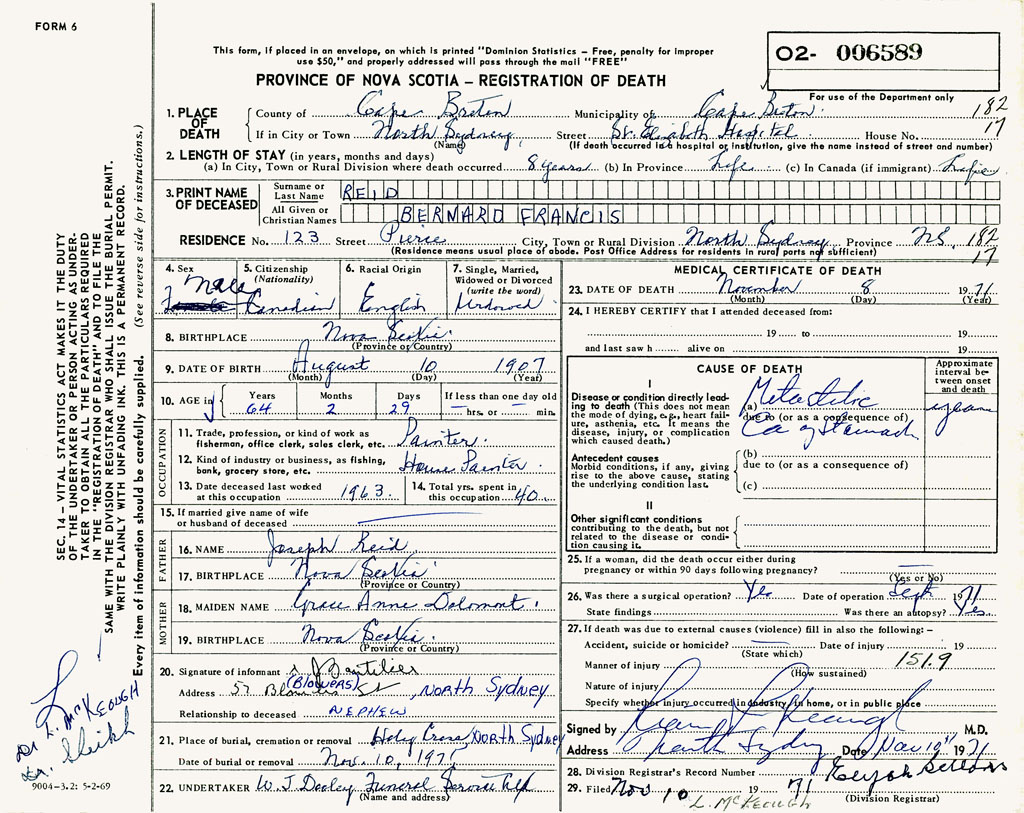 FORM 6
This form, if placed in an envelope, on which is printed "Dominion Statistics – Free, penalty for improper
use $50," and properly addressed will pass through the mail "FREE"
PROVINCE OF NOVA SCOTIA – REGISTRATION OF DEATH
02- 006589
For use of the Department only
182
17
1. PLACE OF DEATH
County of Cape Breton Municipality of Cape Breton
If in City or Town North Sydney Street St. Elizabeth Hospital House No.
(Name) (If death occurred in a hospital or institution, give the name instead of street and number)
2. LENGTH OF STAY (in years, months and days)
(a) In City, Town or Rural Division where death occurred 8 years (b) In Province Life (c) In Canada (if immigrant)
3. PRINT NAME OF DECEASED
Surname or Last Name REID
All Given or Christian Names BERNARD FRANCIS
RESIDENCE No. 123 Street Pierce City, Town or Rural Division North Sydney Province NS. 182
(Residence means usual place of abode. Post Office Address for residents in rural ports not sufficient) 17
4. Sex Male
5. Citizenship (Nationality) Canadian
6. Racial Origin English
7. Single, Married, Widowed or Divorced (write the word) Widowed
8. BIRTHPLACE Nova Scotia
(Province or Country)
9. DATE OF BIRTH August 10 1907
(Month) (Day) (Year)
10. AGE in Years Months Days If less than one day old
64 2 29 hrs. or min.
OCCUPATION
11. Trade, profession, or kind of work as fisherman, office clerk, sales clerk, etc. Painter
12. Kind of industry or business, as fishing, bank, grocery store, etc. House Painter
13. Date deceased last worked at this occupation 1963
14. Total yrs. spent in this occupation 40
15. If married give name of wife or husband of deceased
FATHER
16. NAME Joseph Reid
17. BIRTHPLACE Nova Scotia
(Province or Country)
MOTHER
18. MAIDEN NAME Grace Anne Dolomont
19. BIRTHPLACE Nova Scotia
(Province or Country)
20. Signature of informant
Address 57 (BLOWERS) St, NORTH SYDNEY
Relationship to deceased NEPHEW
21. Place of burial, cremation or removal Holy Cross NORTH SYDNEY
Date of burial or removal Nov. 10, 1971
22. UNDERTAKER W. J. Dooley Funeral Service Ltd
(Name and address)
MEDICAL CERTIFICATE OF DEATH
23. DATE OF DEATH November 8 1971
(Month) (Day) (Year)
24. I HEREBY CERTIFY that I attended deceased from:
19 to 19
and last saw h alive on 19
CAUSE OF DEATH
Approximate interval between onset and death
I
Disease or condition directly leading to death (This does not mean the mode of dying, e.g., heart failure, asthenia, etc. It means the disease, injury, or complication which caused death.)
(a) Metastatic
due to (or as a consequence of)
Ca of Stomach
Antecedent causes
Morbid conditions, if any, giving rise to the above cause, stating the underlying condition last.
(b)
due to (or as a consequence of)
(c)
II
Other significant conditions
contributing to the death, but not related to the disease or condition causing it.
25. If a woman, did the death occur either during pregnancy or within 90 days following pregnancy?
(Yes or No)
26. Was there a surgical operation? Yes Date of operation Sept 1971
State findings Was there an autopsy? Yes
27. If death was due to external causes (violence) fill in also the following:–
Accident, suicide or homicide? Date of injury 19
(State which)
Manner of injury 151.9
(How sustained)
Nature of injury
Specify whether injury occurred in industry, in home, or in public place
Signed by M.D.
Address North Sydney Date Nov 10th 1971
28. Division Registrar's Record Number
29. Filed Nov 10 1971
(Division Registrar)
L. McKEOUGH
SEC. 14 – VITAL STATISTICS ACT MAKES IT THE DUTY
OF THE UNDERTAKER OR PERSON ACTING AS UNDER-
TAKER TO OBTAIN ALL THE PARTICULARS REQUIRED
IN THE "REGISTRATION OF DEATH" AND TO FILE THE
SAME WITH THE DIVISION REGISTRAR WHO SHALL ISSUE THE BURIAL PERMIT.
WRITE PLAINLY WITH UNFADING INK. THIS IS A PERMANENT RECORD.
Every item of information should be carefully supplied. (See reverse side for instructions.)
Dr L. McKEOUGH
Dr. Sheikh
9004-3.2: 5-2-69